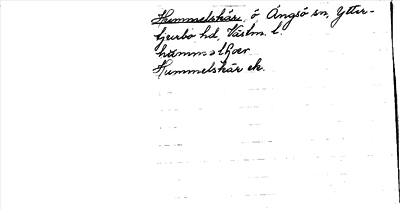 Hummelskär, ö Ängsö sn, Ytter-
tjurbo hd, Västm. l.
hummalſkær
Hummelskär ek.